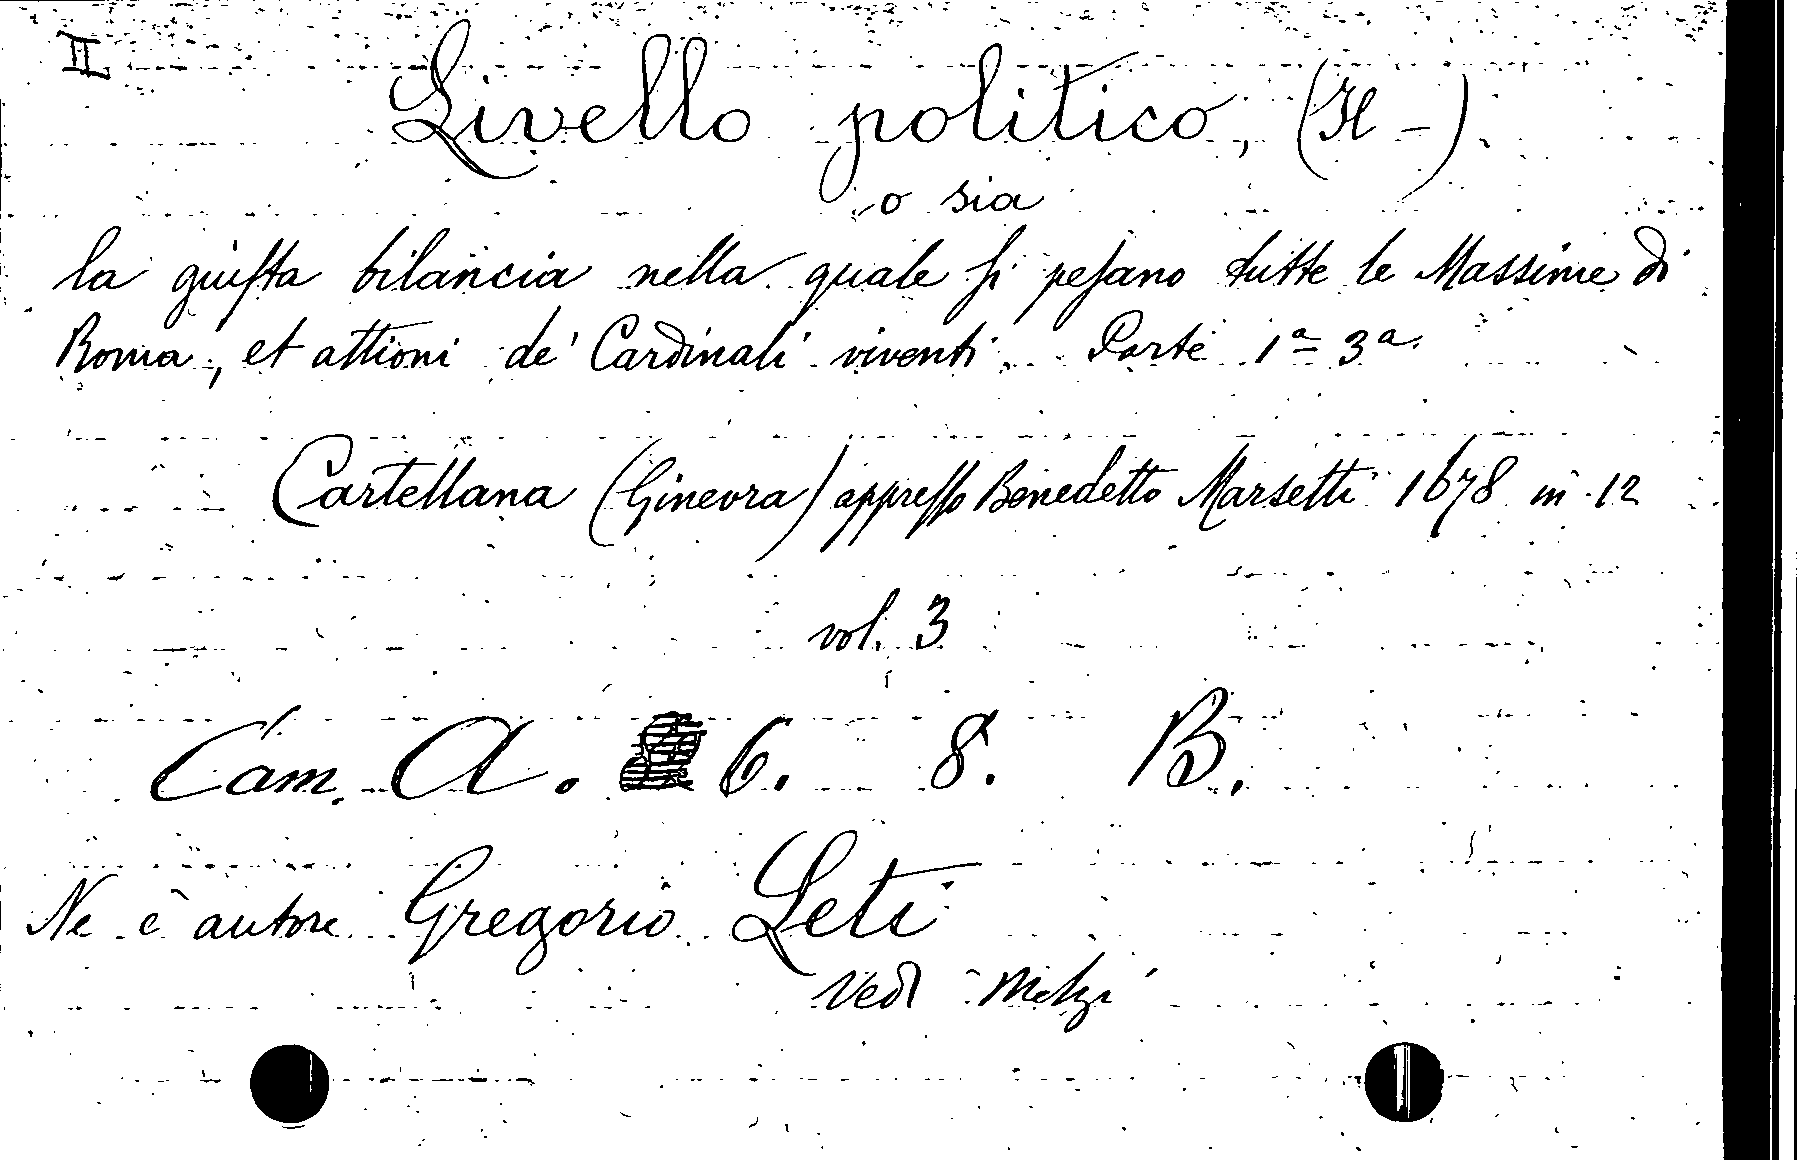 II
Livello politico, (Il -)
o sia
la giuſta bilancia nella quale ſi peſano tutte le Massime di
Roma, et attioni de' Cardinali viventi. Parte 1ª = 3ª.
Cartellana (Ginevra) appreſſo Benedetto Marsetti 1678 in 12
vol. 3
Cam. A. 6. 8. B.
Ne è autore Gregorio Leti
Vedi Melzi